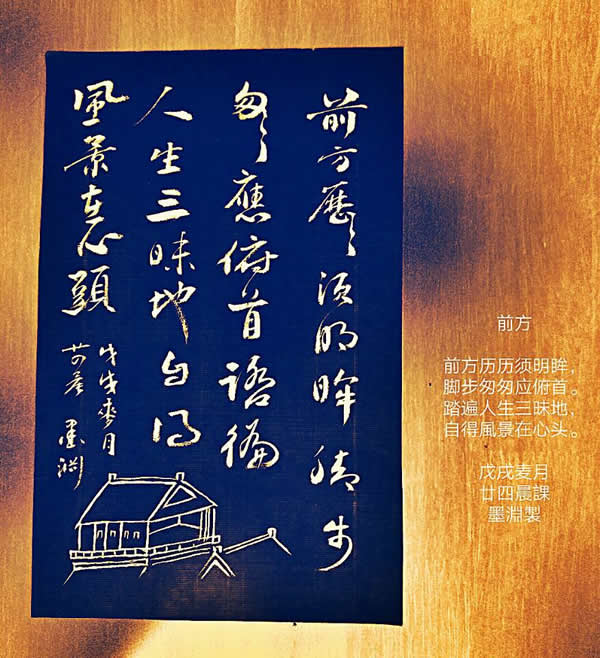 前方歷々须明眸腳步
匆々應俯首踏遍
人生三昧地自得
風景在心頭
戊戌麥月
廿四晨 墨渊
前方
前方历历须明眸，
脚步匆匆应俯首。
踏遍人生三昧地、
自得風景在心头。
戊戌麦月
廿四晨課
墨淵製